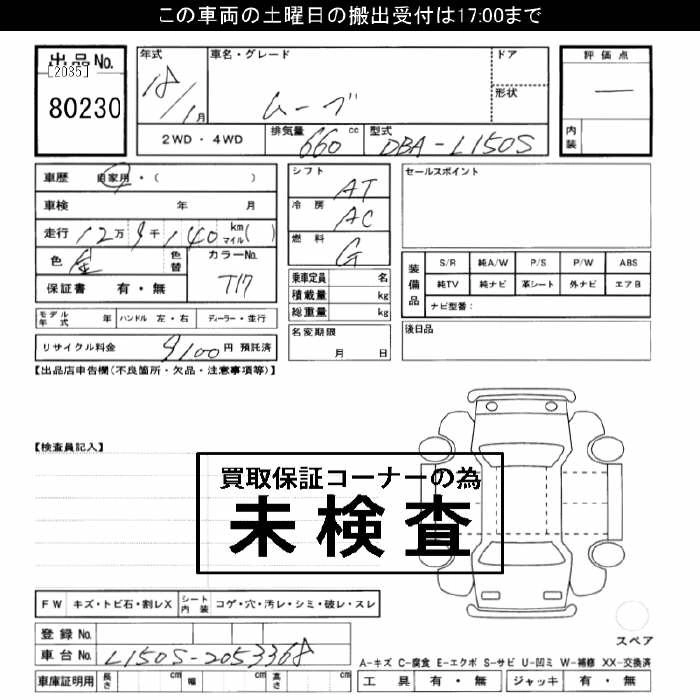 この車両の土曜日の搬出受付は17:00まで
出品No. 年式 車名・グレード ドア 評価点
[2035]
80230 18/1月 ムーブ 形状 —
2WD・4WD 排気量 660 cc 型式 DBA-L150S 内装
車歴 自家用・( ) シフト AT セールスポイント
車検 年 月 冷房 AC
走行 12万9千140 km マイル( ) 燃料 G
色 金 色替 カラーNo. T17 装備品 S/R 純A/W P/S P/W ABS
保証書 有・無 乗車定員 名 純TV 純ナビ 革シート 外ナビ エアB
積載量 kg ナビ型番:
総重量 kg
モデル年式 年 ハンドル 左・右 ディーラー・並行 名変期限 月 日 後日品
リサイクル料金 9100円 預託済
【出品店申告欄(不良箇所・欠品・注意事項等)】
【検査員記入】
買取保証コーナーの為
未検査
FW キズ・トビ石・割レX シート内装 コゲ・穴・汚レ・シミ・破レ・スレ
スペア
登録No.
車台No. L150S-2053368
A-キズ C-腐食 E-エクボ S-サビ U-凹ミ W-補修 XX-交換済
車庫証明用 長さ cm 幅 cm 高さ cm 工具 有・無 ジャッキ 有・無